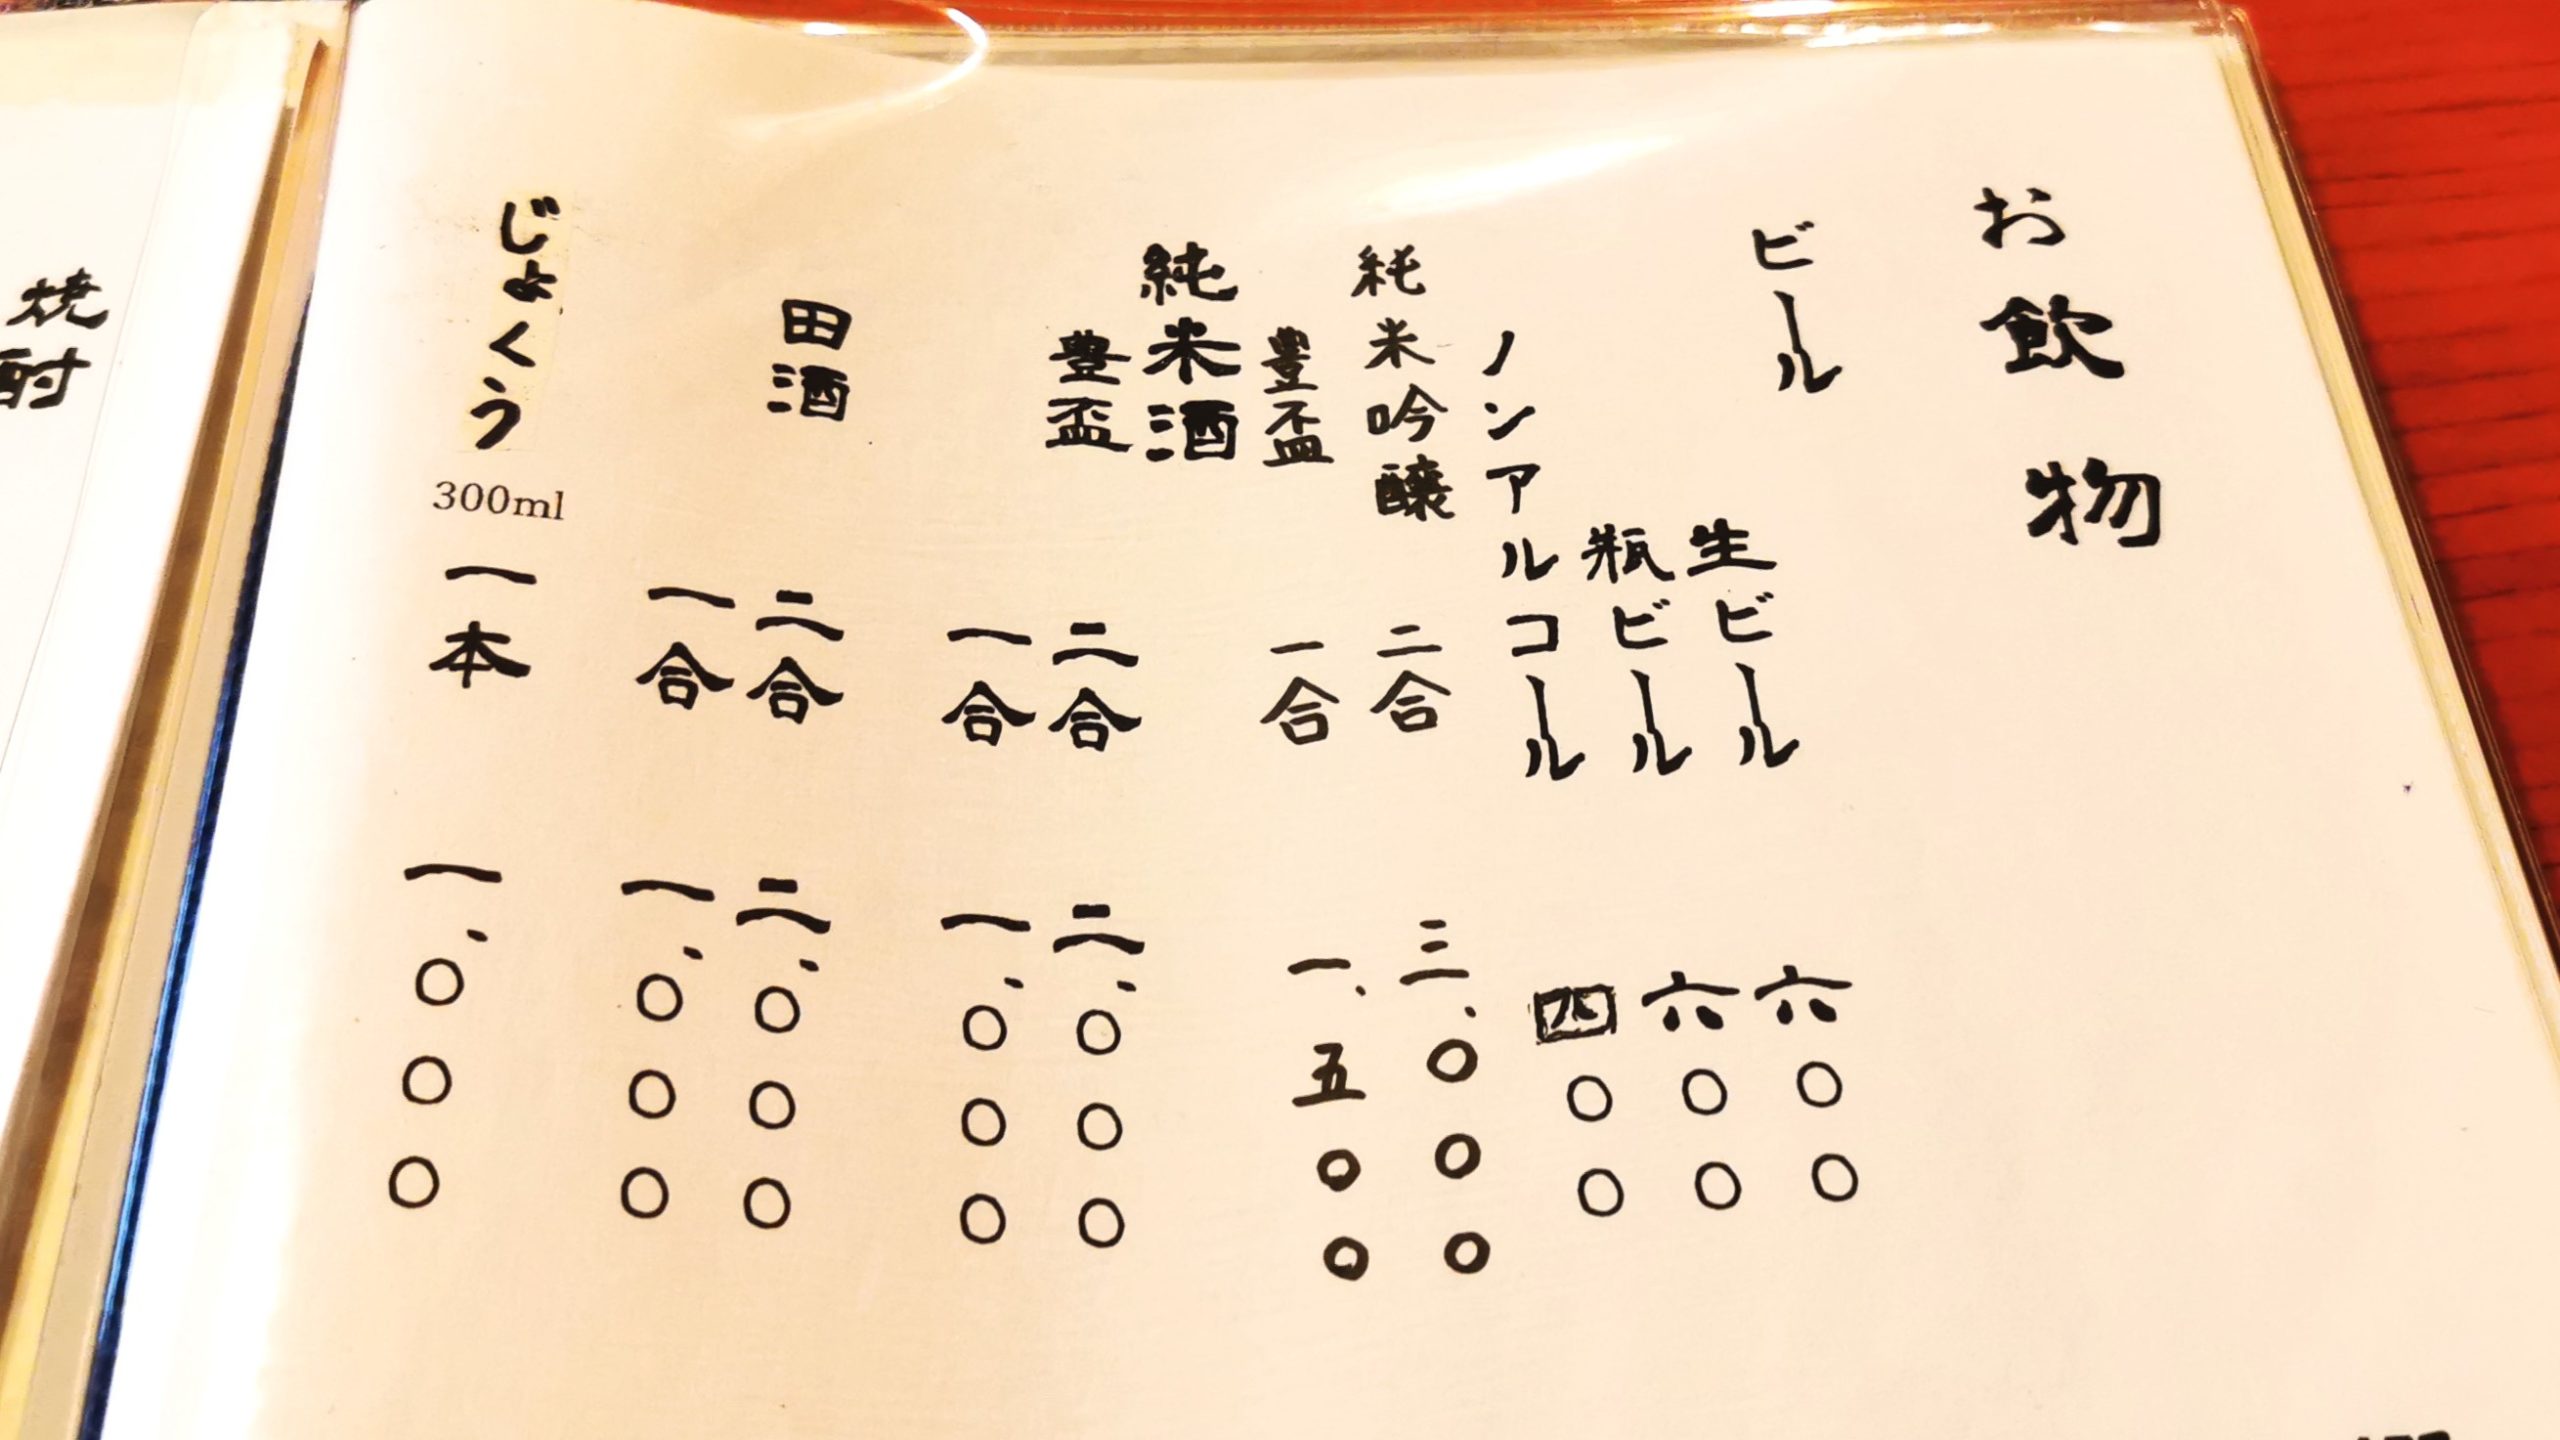 お飲物
ビール
生ビール 六〇〇
瓶ビール 六〇〇
ノンアルコール 四〇〇
純米吟醸
豊盃
二合 三、〇〇〇
一合 一、五〇〇
純米酒
豊盃
二合 二、〇〇〇
一合 一、〇〇〇
田酒
二合 二、〇〇〇
一合 一、〇〇〇
じょくう 300ml 一本 一、〇〇〇
焼酎